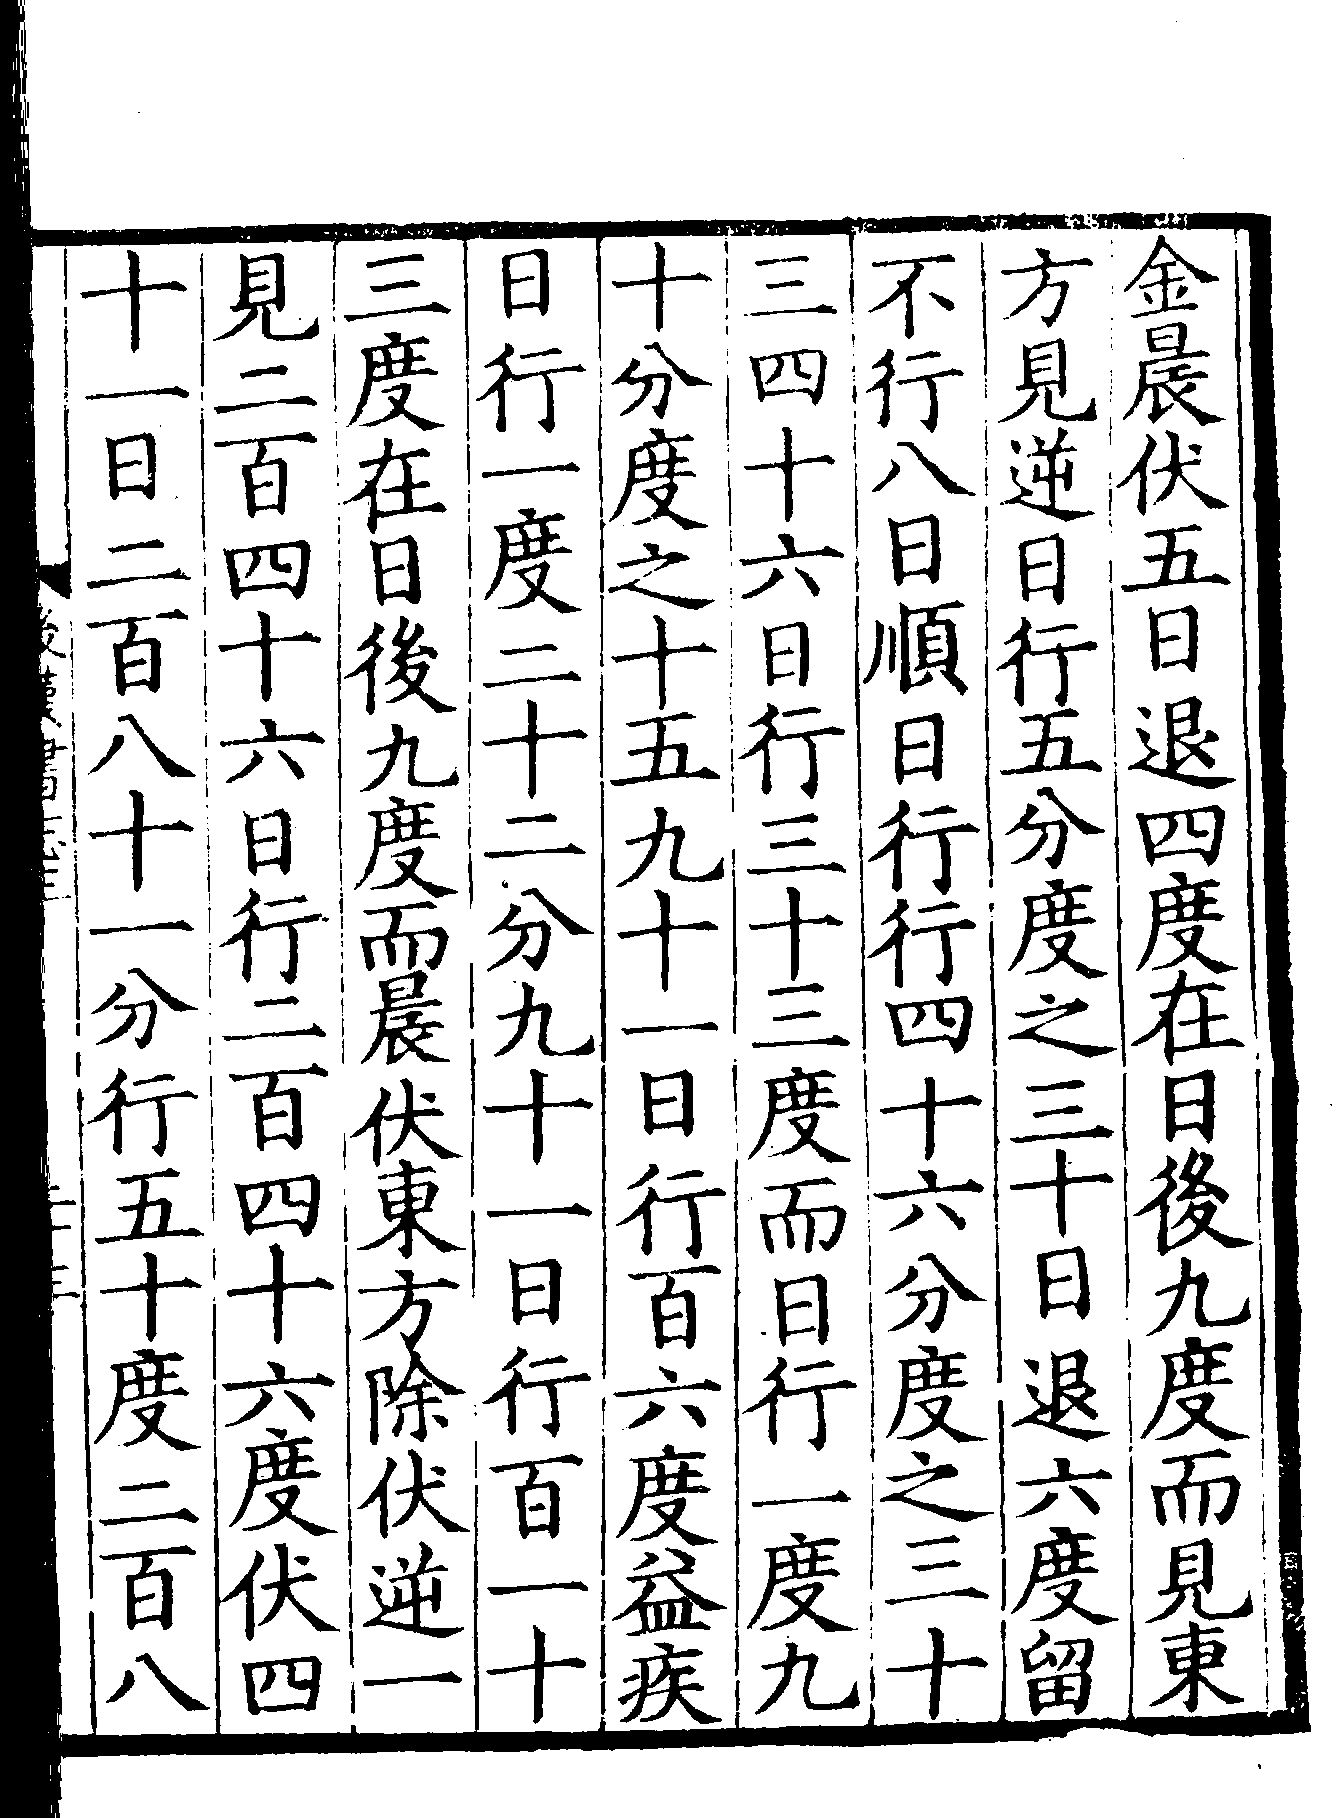 金晨伏五日退四度在日後九度而見東
方見逆日行五分度之三十日退六度留
不行八日順日行行四十六分度之三十
三四十六日行三十三度而日行一度九
十分度之十五九十一日行百六度益疾
日行一度二十二分九十一日行百一十
三度在日後九度而晨伏東方除伏逆一
見二百四十六日行二百四十六度伏四
十一日二百八十一分行五十度二百八
後漢書志三